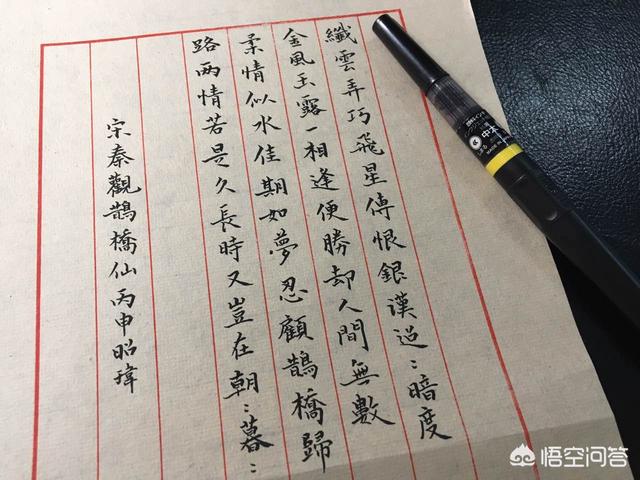 纖雲弄巧飛星傳恨銀漢迢：暗度
金風玉露一相逢便勝却人間無數
柔情似水佳期如夢忍顧鵲橋歸
路兩情若是久長時又豈在朝：暮：
宋秦觀鵲橋仙丙申昭瑋
中本
悟空问答